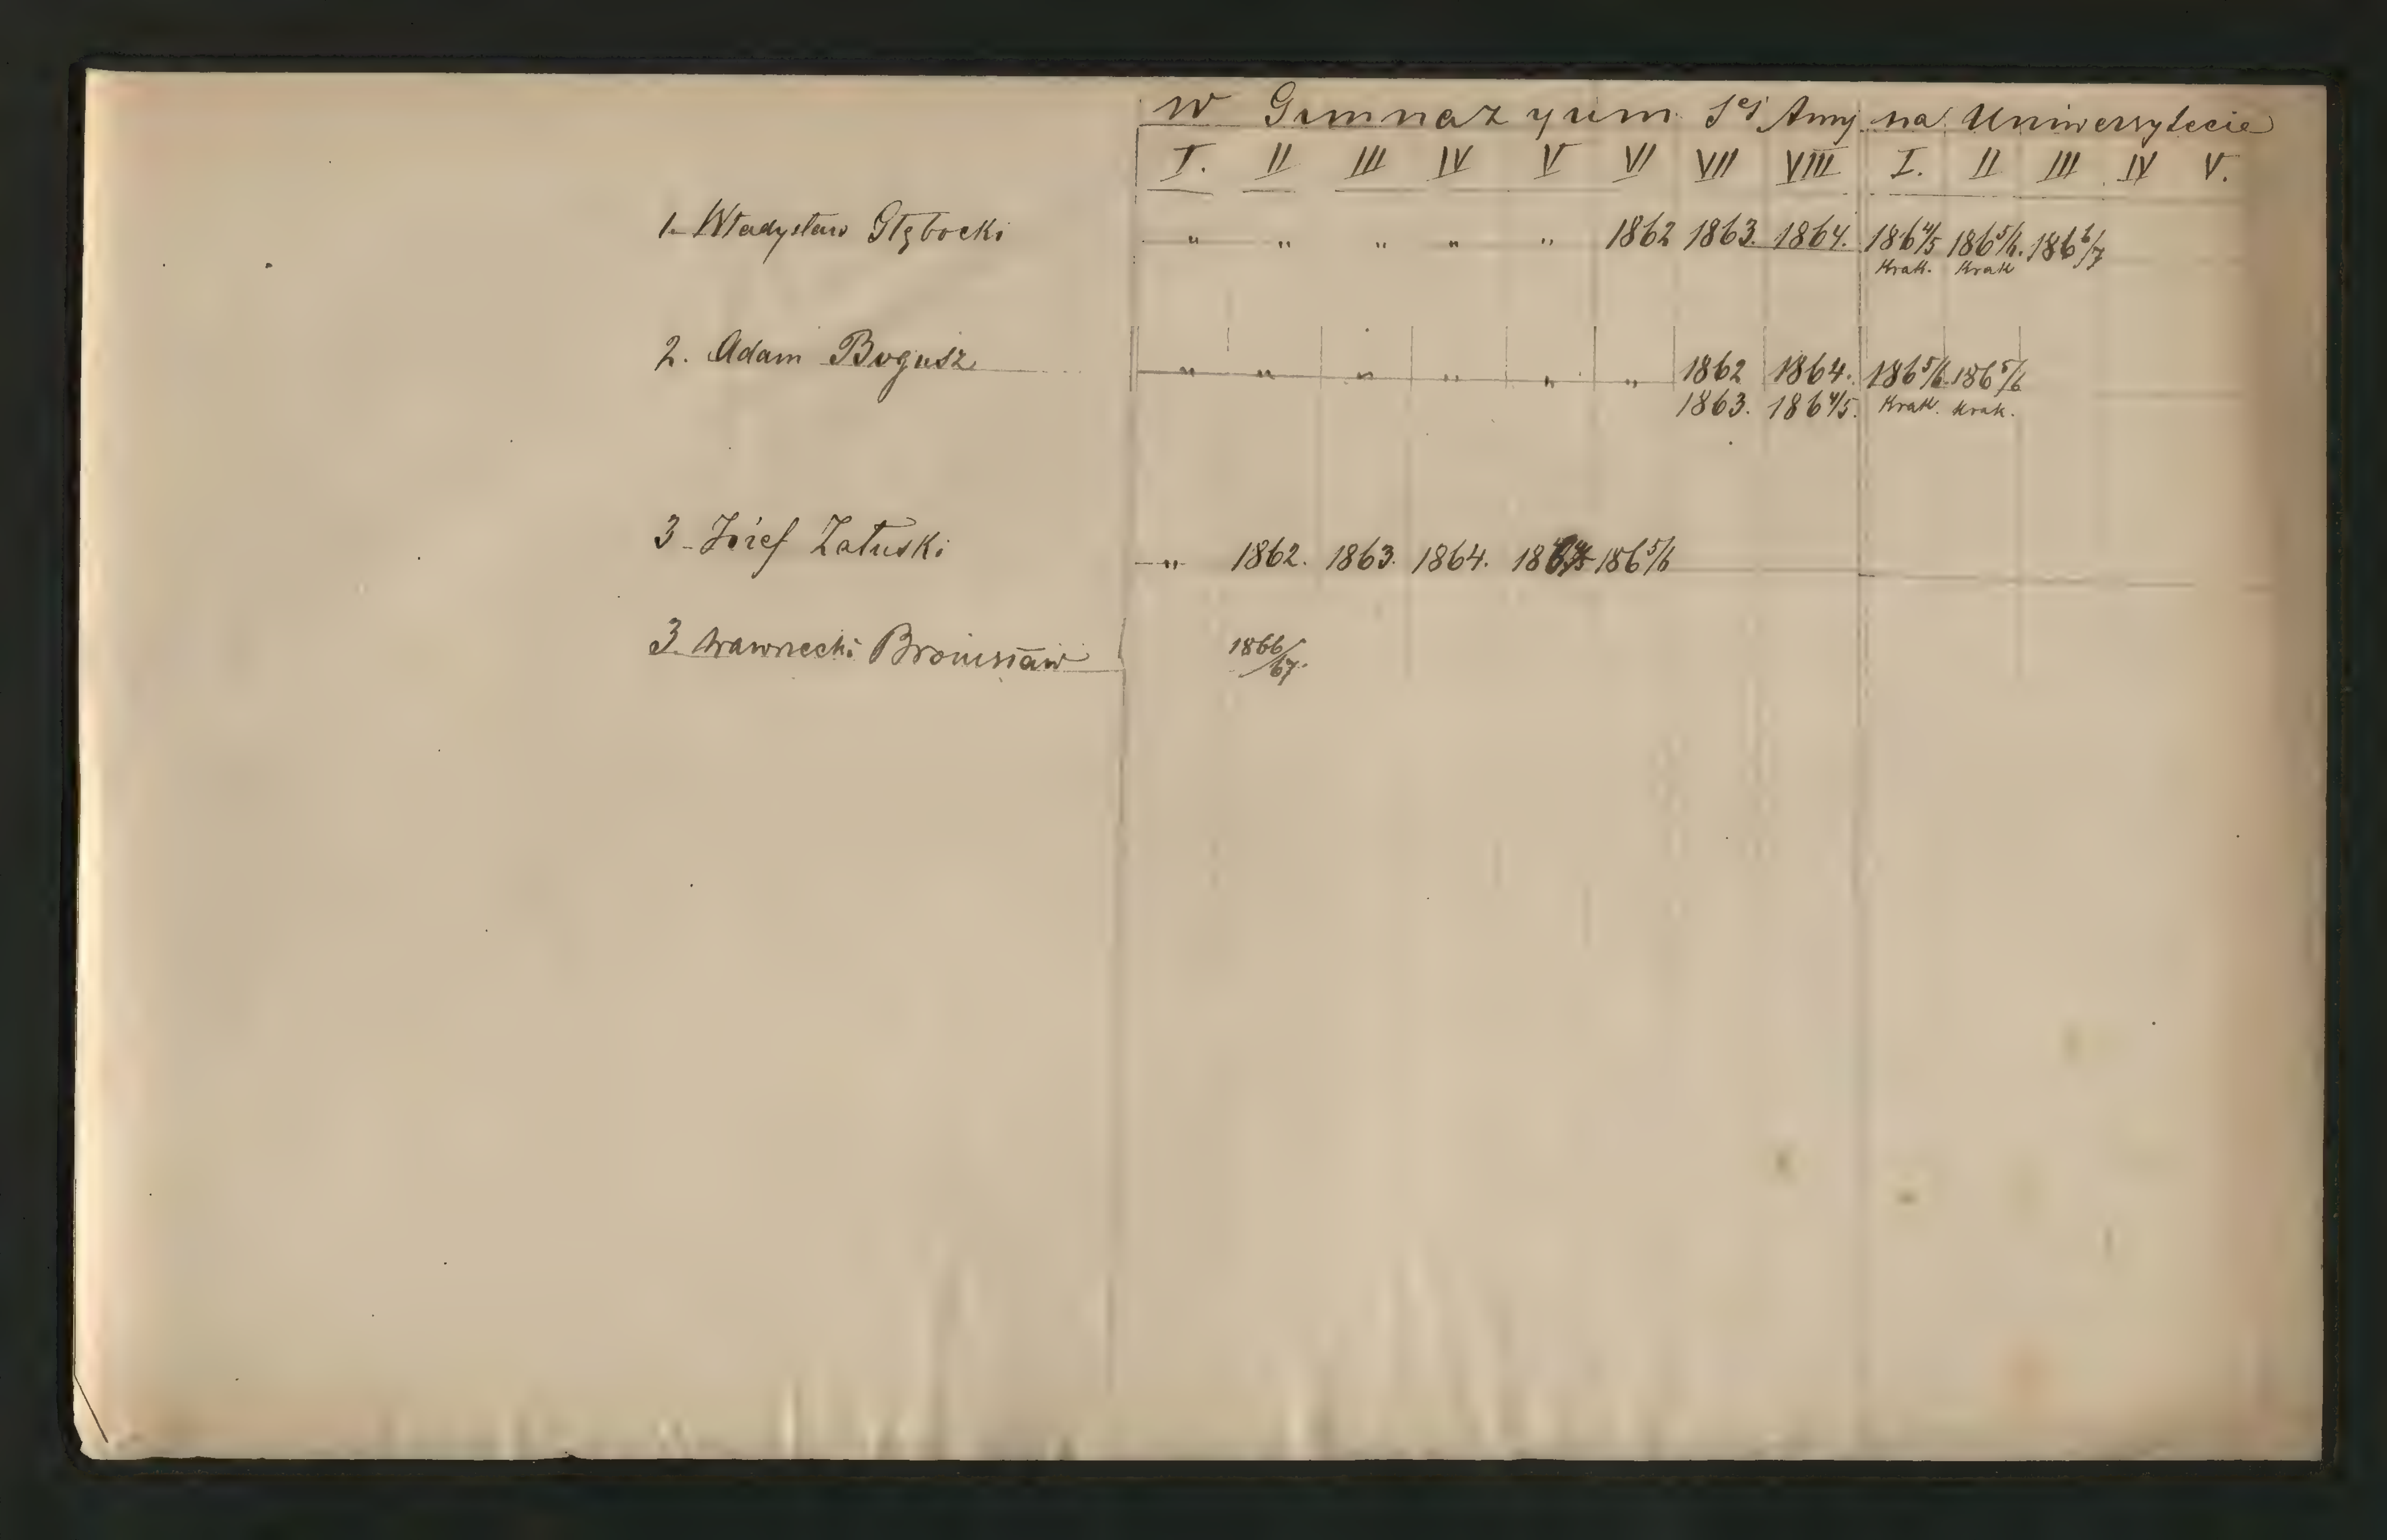 w Gimnazyum Sej Anny na Uniwersytecie
I. II III IV V VI VII VIII I. II III IV V.
1. Władysław Głębocki " " " " " 1862 1863. 1864. 186 4/5 186 5/6. 186 6/7
Krak. Krak
2. Adam Bogusz " " " " " " 1862 1864. 186 5/6 186 5/6
1863. 186 4/5. Krak. Krak.
3 Józef Załuski " 1862. 1863. 1864. 186 4/5 186 5/6
3. Wawrzecki Bronisław 1866/67.